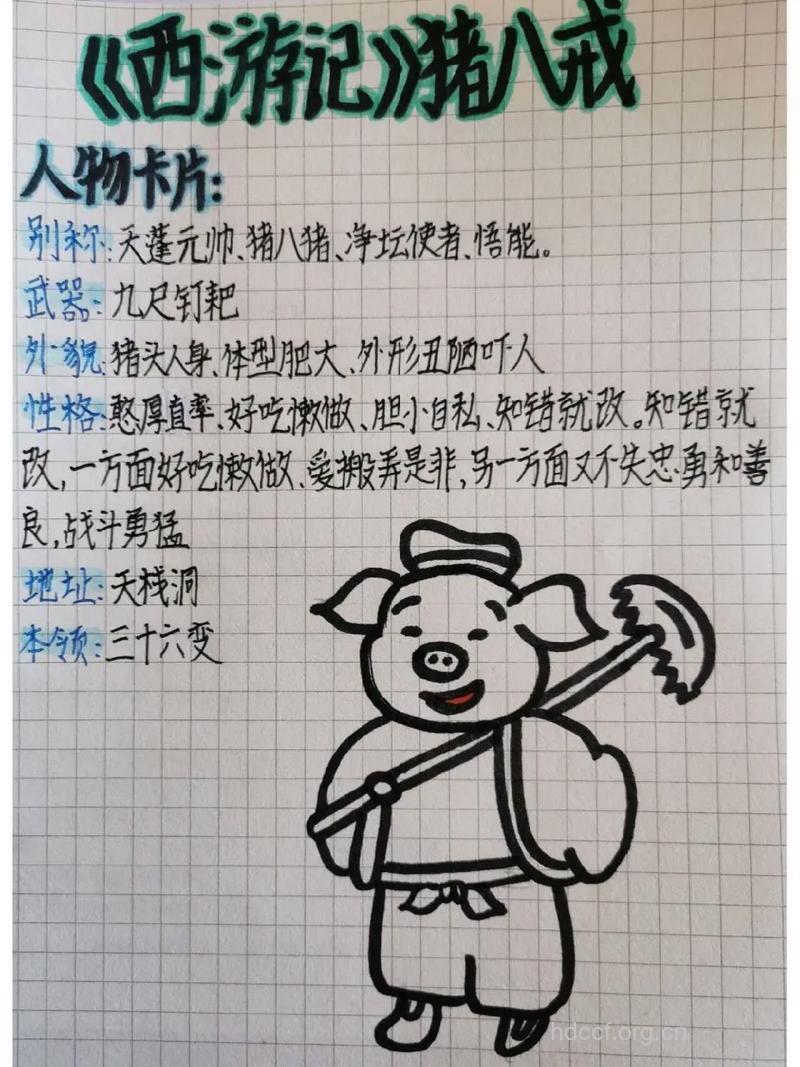 《西游记》猪八戒
人物卡片:
别称:天蓬元帅、猪八猪、净坛使者、悟能。
武器:九尺钉耙
外貌:猪头人身、体型肥大、外形丑陋吓人
性格:憨厚直率、好吃懒做、胆小自私、知错就改。知错就
改,一方面好吃懒做、爱搬弄是非,另一方面又不失忠勇和善
良,战斗勇猛
地址:天栈洞
本领:三十六变
hdccf.org.cn